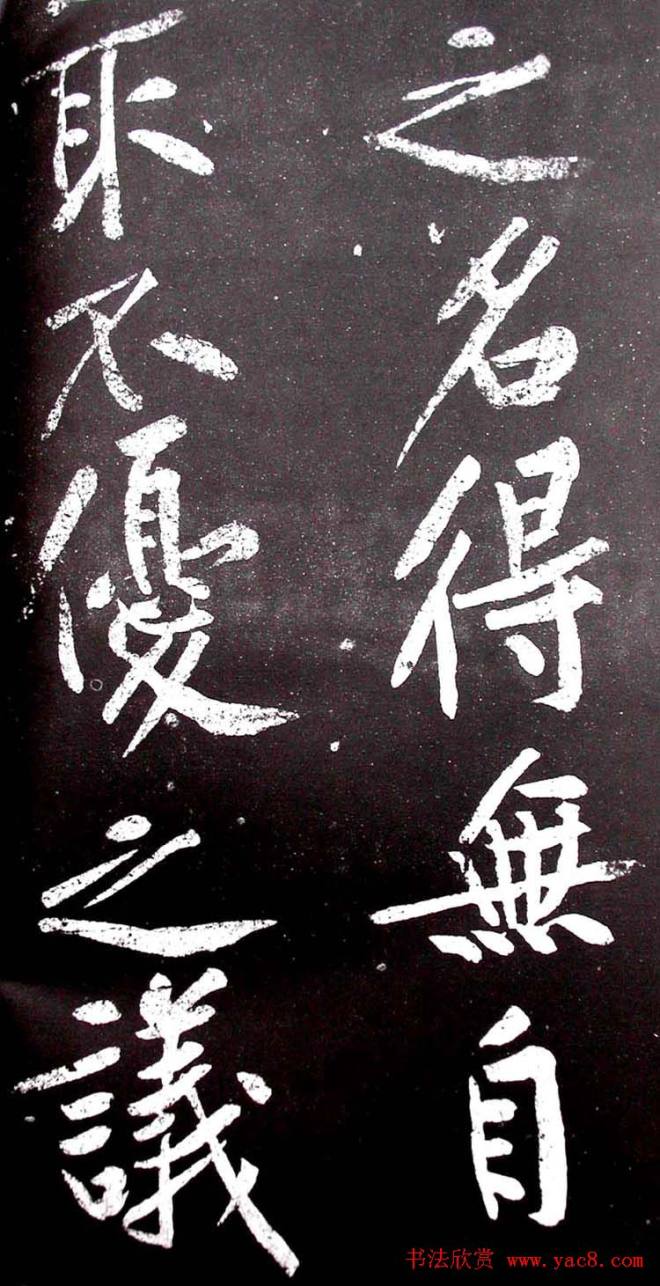 之名得無自
取不優之議
书法欣赏 www.yac8.com